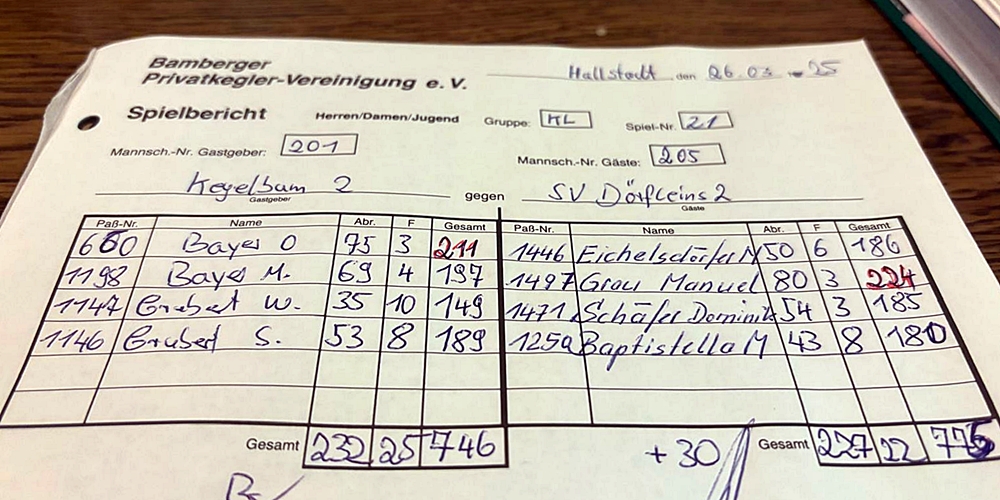 Bamberger
Privatkegler-Vereinigung e.V.
Hallstadt den 26.03 25
Spielbericht Herren/Damen/Jugend Gruppe: KL Spiel-Nr. 21
Mannsch.-Nr. Gastgeber: 201 Mannsch.-Nr. Gäste: 205
2 gegen SV Dörfleins 2
Gastgeber Gäste
Paß-Nr. Name Abr. F Gesamt Paß-Nr. Name Abr. F Gesamt
660 Bayer O 75 3 211 1446 Eichelsdörfer M 50 6 186
1198 Bayer M. 69 4 197 1497 Grau Manuel 80 3 224
1147 Grubert W. 35 10 149 1471 Schäfer Dominik 54 3 185
1146 Grubert S. 53 8 189 Baptistella M 43 8 180
Gesamt 232 25 746 +30 Gesamt 227 22